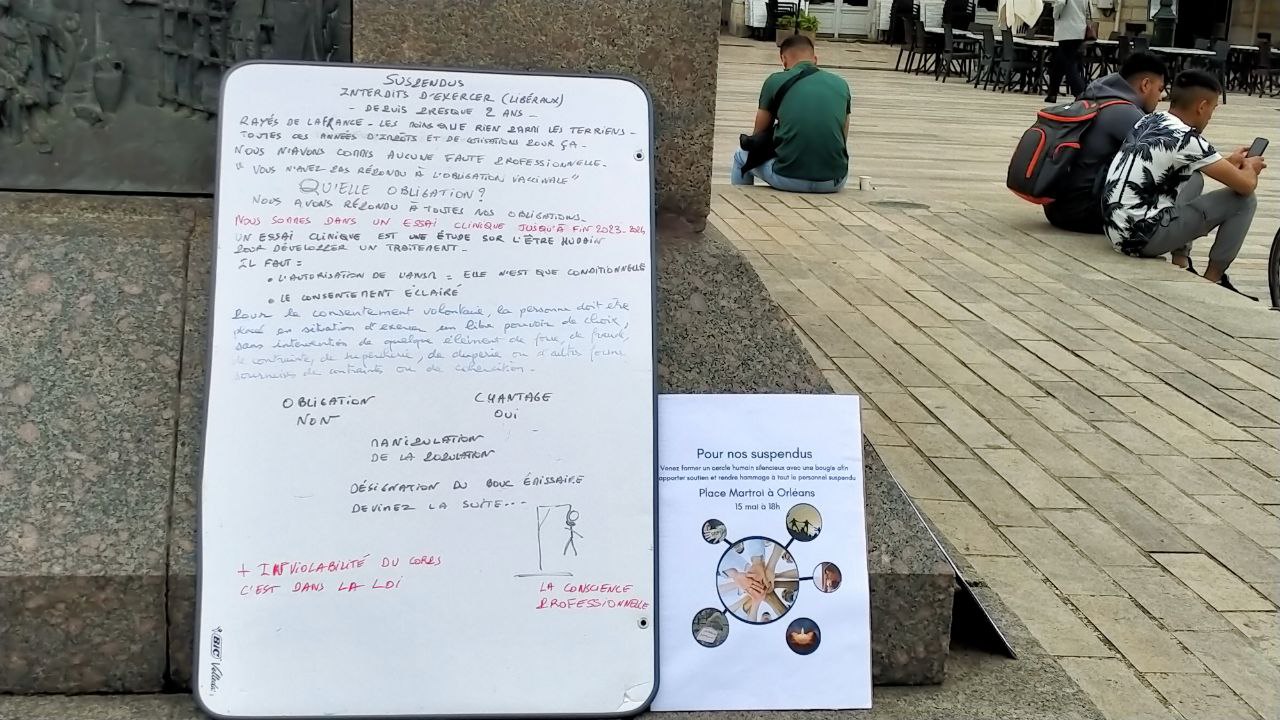 SUSPENDUS
INTERDITS D'EXERCER (LIBÉRAUX)
- DEPUIS PRESQUE 2 ANS -
RAYÉS DE LA FRANCE - LES MOINS QUE RIEN PARMI LES TERRIENS -
TOUTES CES ANNÉES D'IMPÔTS ET DE COTISATIONS POUR ÇA -
NOUS N'AVONS COMMIS AUCUNE FAUTE PROFESSIONNELLE -
"VOUS N'AVEZ PAS RÉPONDU À L'OBLIGATION VACCINALE"
QU'ELLE OBLIGATION ?
NOUS AVONS RÉPONDU À TOUTES NOS OBLIGATIONS -
NOUS SOMMES DANS UN ESSAI CLINIQUE JUSQU'À FIN 2023-2024
UN ESSAI CLINIQUE EST UNE ÉTUDE SUR L'ÊTRE HUMAIN
POUR DÉVELOPPER UN TRAITEMENT -
IL FAUT :
• L'AUTORISATION DE L'ANSM = ELLE N'EST QUE CONDITIONNELLE
• LE CONSENTEMENT ÉCLAIRÉ
Pour le consentement volontaire, la personne doit être
placé en situation d'exercer un libre pouvoir de choix,
sans intervention de quelque élément de force, de fraude,
de contrainte, de supercherie, de duperie ou d'autres formes
sournoises de contraintes ou de coercition -
OBLIGATION CHANTAGE
NON OUI
MANIPULATION
DE LA POPULATION
DÉSIGNATION DU BOUC ÉMISSAIRE
DEVINEZ LA SUITE...
+ INVIOLABILITÉ DU CORPS
C'EST DANS LA LOI
LA CONSCIENCE
PROFESSIONNELLE
BIC Velleda
Pour nos suspendus
Venez former un cercle humain silencieux avec une bougie afin
apporter soutien et rendre hommage à tout le personnel suspendu
Place Martroi à Orléans
15 mai à 18h